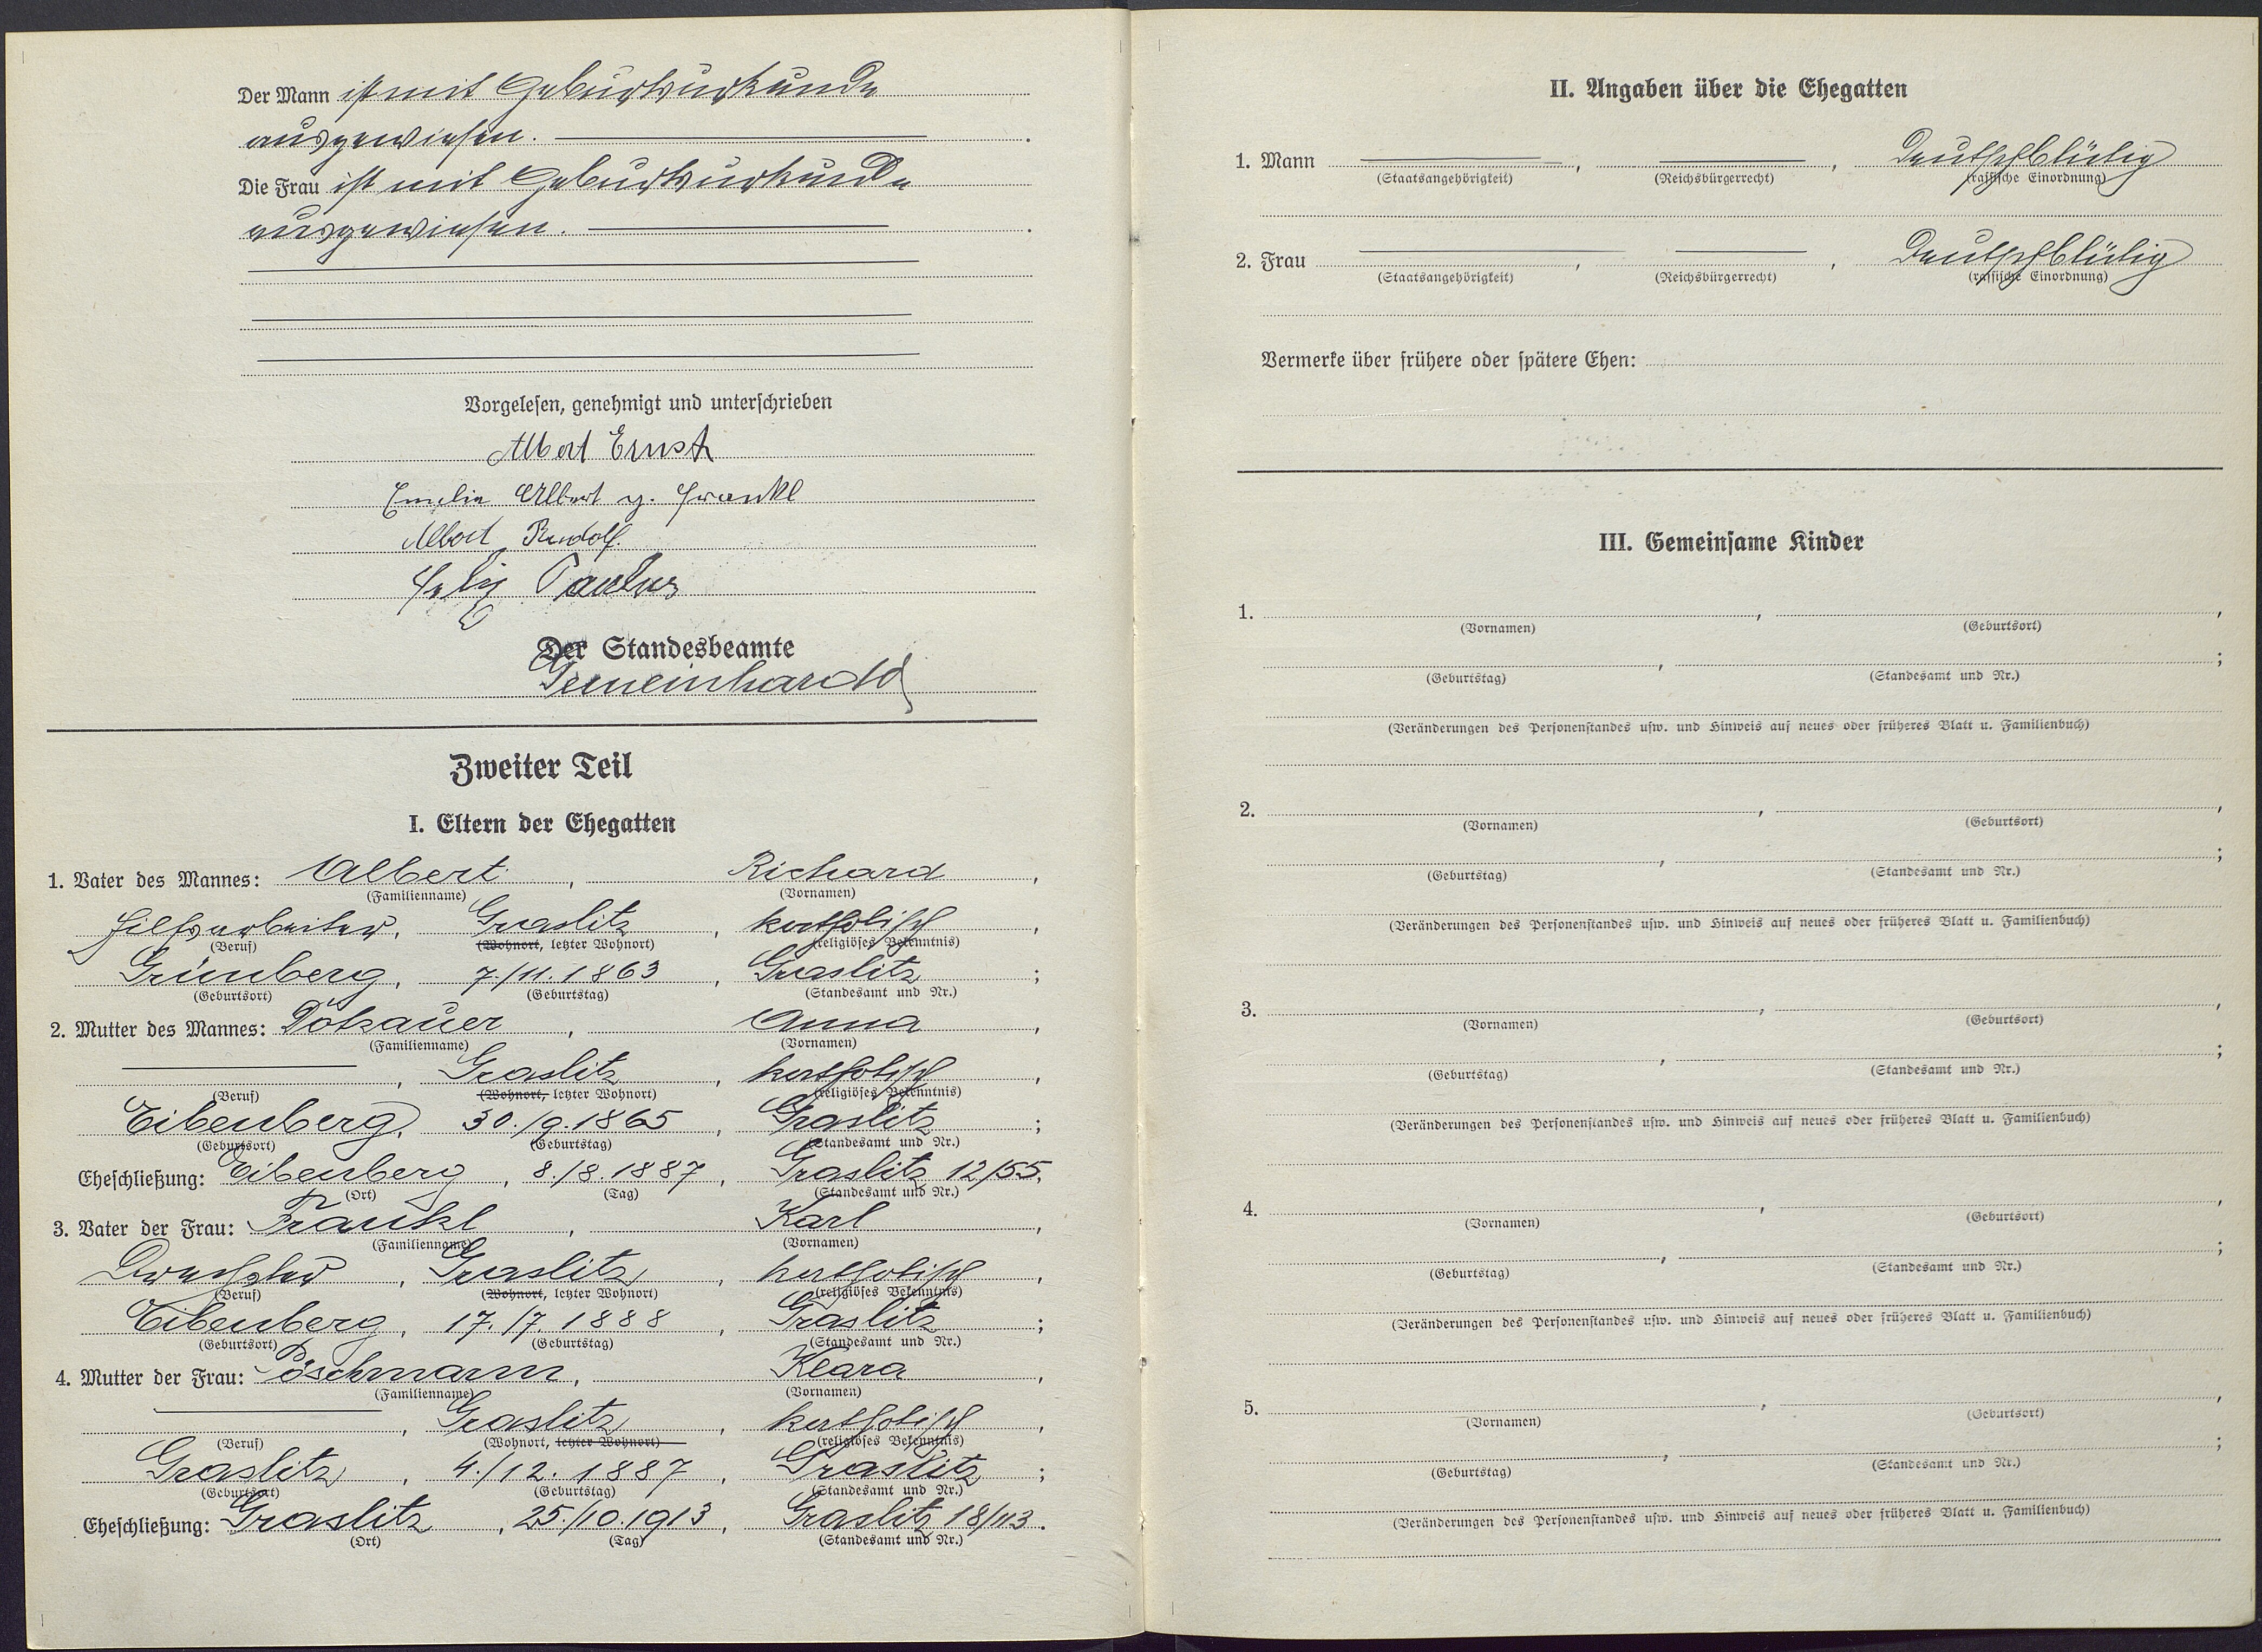 Der Mann ist mit Geburtsurkunde
ausgewiesen.
Die Frau ist mit Geburtsurkunde
ausgewiesen.
Vorgelesen, genehmigt und unterschrieben
Albert Ernst
Emilie Albert g. Frankl
Albert Rudolf.
Paulus
Der Standesbeamte
Gemeinhardt
Zweiter Teil
I. Eltern der Ehegatten
1. Vater des Mannes: Albert, Richard,
(Familienname) (Vornamen)
Hilfsarbeiter, Graslitz, katholisch,
(Beruf) (Wohnort, letzter Wohnort) (religiöses Bekenntnis)
Grünberg, 7./11.1863, Graslitz;
(Geburtsort) (Geburtstag) (Standesamt und Nr.)
2. Mutter des Mannes: Dotzauer, Anna,
(Familienname) (Vornamen)
, Graslitz, katholisch,
(Beruf) (Wohnort, letzter Wohnort) (religiöses Bekenntnis)
Eibenberg, 30./9.1865, Graslitz;
(Geburtsort) (Geburtstag) (Standesamt und Nr.)
Eheschließung: Eibenberg, 8./8.1887, Graslitz 12/55.
(Ort) (Tag) (Standesamt und Nr.)
3. Vater der Frau: Frankl, Karl,
(Familienname) (Vornamen)
Drechsler, Graslitz, katholisch,
(Beruf) (Wohnort, letzter Wohnort) (religiöses Bekenntnis)
Eibenberg, 17./7.1888, Graslitz;
(Geburtsort) (Geburtstag) (Standesamt und Nr.)
4. Mutter der Frau: Pöschmann, Klara,
(Familienname) (Vornamen)
, Graslitz, katholisch,
(Beruf) (Wohnort, letzter Wohnort) (religiöses Bekenntnis)
Graslitz, 4./12.1887, Graslitz;
(Geburtsort) (Geburtstag) (Standesamt und Nr.)
Eheschließung: Graslitz, 25./10.1913, Graslitz 18/113.
(Ort) (Tag) (Standesamt und Nr.)
II. Angaben über die Ehegatten
1. Mann , , Deutschblütig
(Staatsangehörigkeit) (Reichsbürgerrecht) (rassische Einordnung)
2. Frau , , Deutschblütig
(Staatsangehörigkeit) (Reichsbürgerrecht) (rassische Einordnung)
Vermerke über frühere oder spätere Ehen:
III. Gemeinsame Kinder
1. , ,
(Vornamen) (Geburtsort)
, ;
(Geburtstag) (Standesamt und Nr.)
(Veränderungen des Personenstandes usw. und Hinweis auf neues oder früheres Blatt u. Familienbuch)
2. , ,
(Vornamen) (Geburtsort)
, ;
(Geburtstag) (Standesamt und Nr.)
(Veränderungen des Personenstandes usw. und Hinweis auf neues oder früheres Blatt u. Familienbuch)
3. , ,
(Vornamen) (Geburtsort)
, ;
(Geburtstag) (Standesamt und Nr.)
(Veränderungen des Personenstandes usw. und Hinweis auf neues oder früheres Blatt u. Familienbuch)
4. , ,
(Vornamen) (Geburtsort)
, ;
(Geburtstag) (Standesamt und Nr.)
(Veränderungen des Personenstandes usw. und Hinweis auf neues oder früheres Blatt u. Familienbuch)
5. , ,
(Vornamen) (Geburtsort)
, ;
(Geburtstag) (Standesamt und Nr.)
(Veränderungen des Personenstandes usw. und Hinweis auf neues oder früheres Blatt u. Familienbuch)